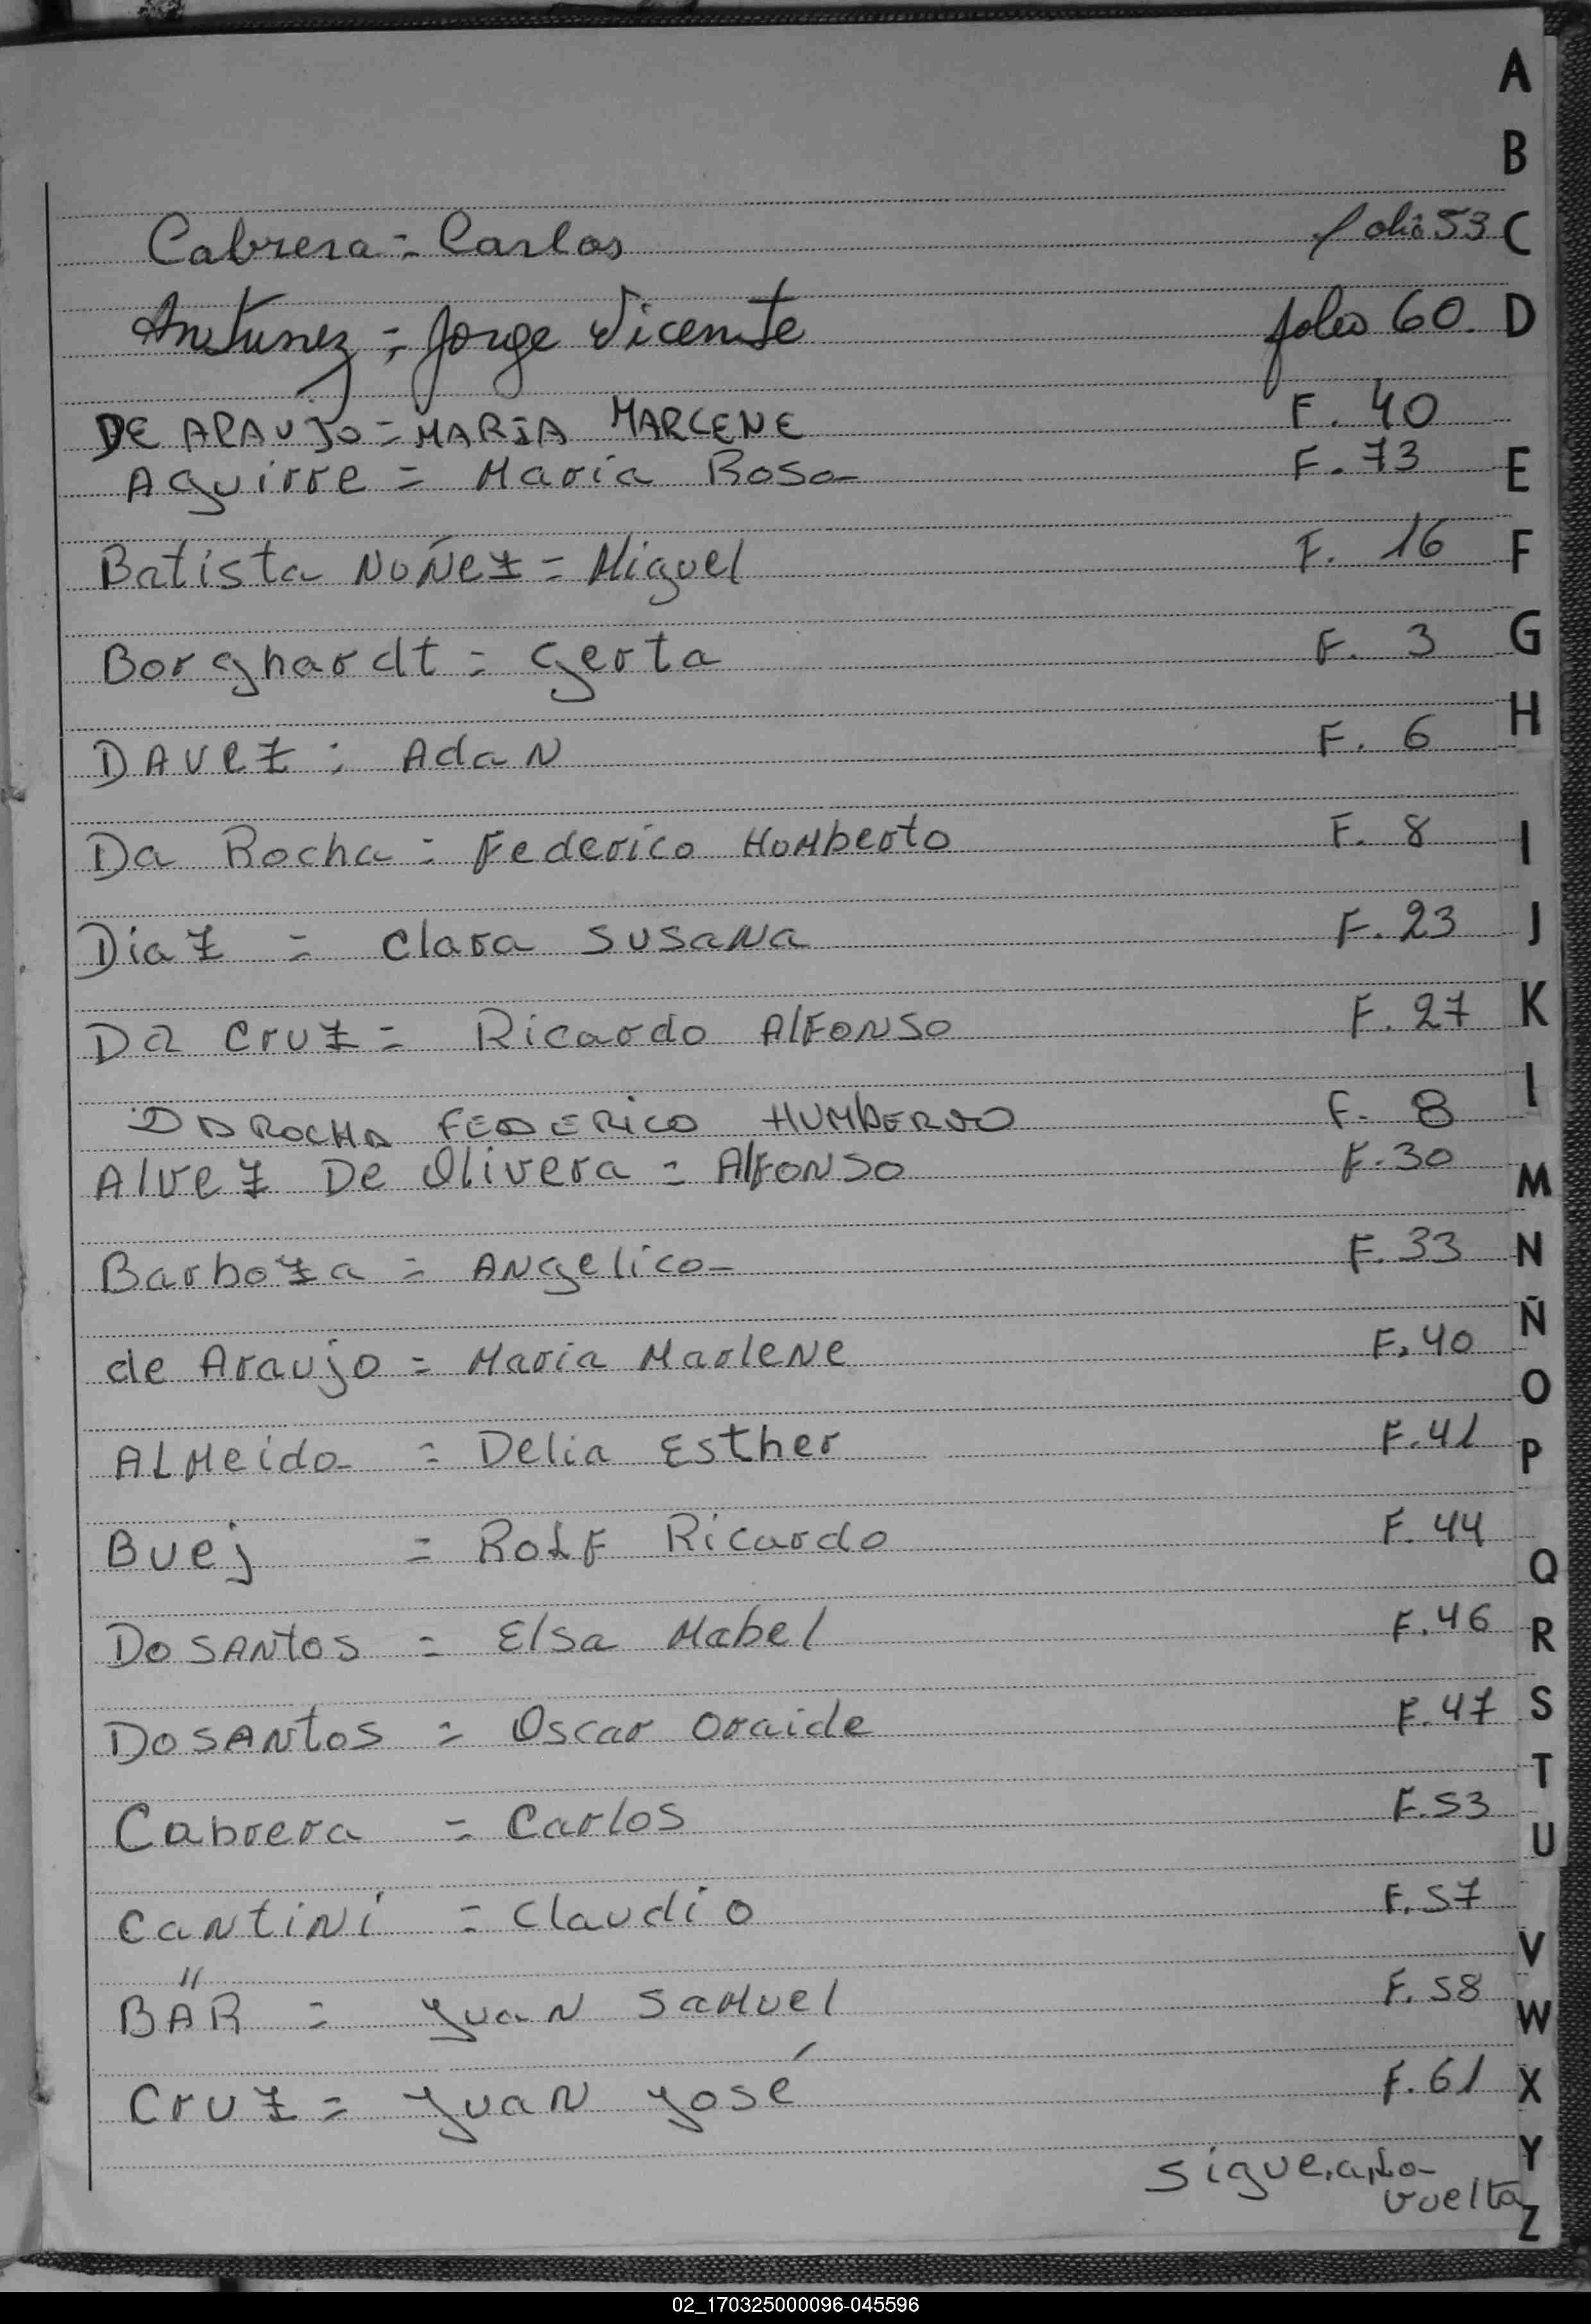 A
B
Cabrera = Carlos folio 53 C
Antunez = Jorge Vicente folio 60. D
DE ARAUJO = MARIA MARLENE F. 40
Aguirre = Maria Rosa F. 73 E
Batista NUÑez = Miguel F. 16 F
Borghardt = Gerta F. 3 G
H
DAVEZ = AdaN F. 6
Da Rocha = Federico HUMberto F. 8 I
Diaz = Clara SUSaNa F. 23 J
Da Cruz = Ricardo AlFONSO F. 27 K
DA ROCHA FEDERICO HUMBERTO F. 8 l
Alvez De Olivera = AlFONSO F. 30 M
Barboza = ANgelica F. 33 N
Ñ
de Araujo = Maria MarleNe F. 40
O
ALMeida = Delia Esther F. 41 P
Buej = RoLF Ricardo F. 44
Q
Do SANtos = Elsa Mabel F. 46 R
Do SANtos = Oscar Oraide F. 47 S
T
Cabrera = Carlos F. 53
U
CaNtiNi = Claudio F. 57
V
BÄR = JuaN SaMuel F. 58 W
Cruz = JuaN José F. 61 X
sigue a la Y
vuelta Z
02_170325000096-045596